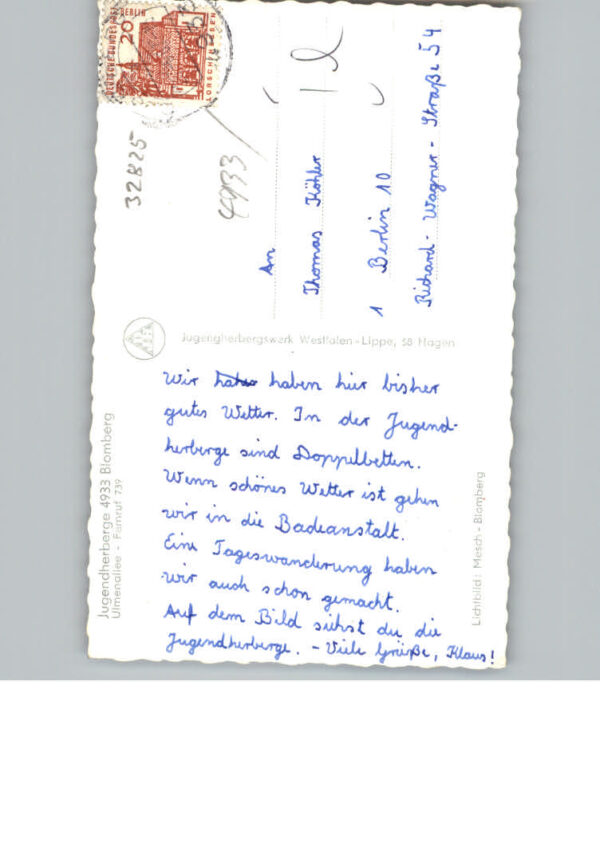 Wir haben hier bisher
gutes Wetter. In der Jugend-
herberge sind Doppelbetten.
Wenn schönes Wetter ist gehen
wir in die Badeanstalt.
Eine Tageswanderung haben
wir auch schon gemacht.
Auf dem Bild siehst du die
Jugendherberge. - Viele Grüße, Klaus!
An
Thomas Köhler
1 Berlin 10
Richard-Wagner-Straße 54
Jugendherbergswerk Westfalen-Lippe, 58 Hagen
Jugendherberge 4933 Blomberg
Ulmenallee - Fernruf 739
Lichtbild: Mesch - Blomberg
DEUTSCHE BUNDESPOST BERLIN
20
LORSCH/HESSEN
32825
4933